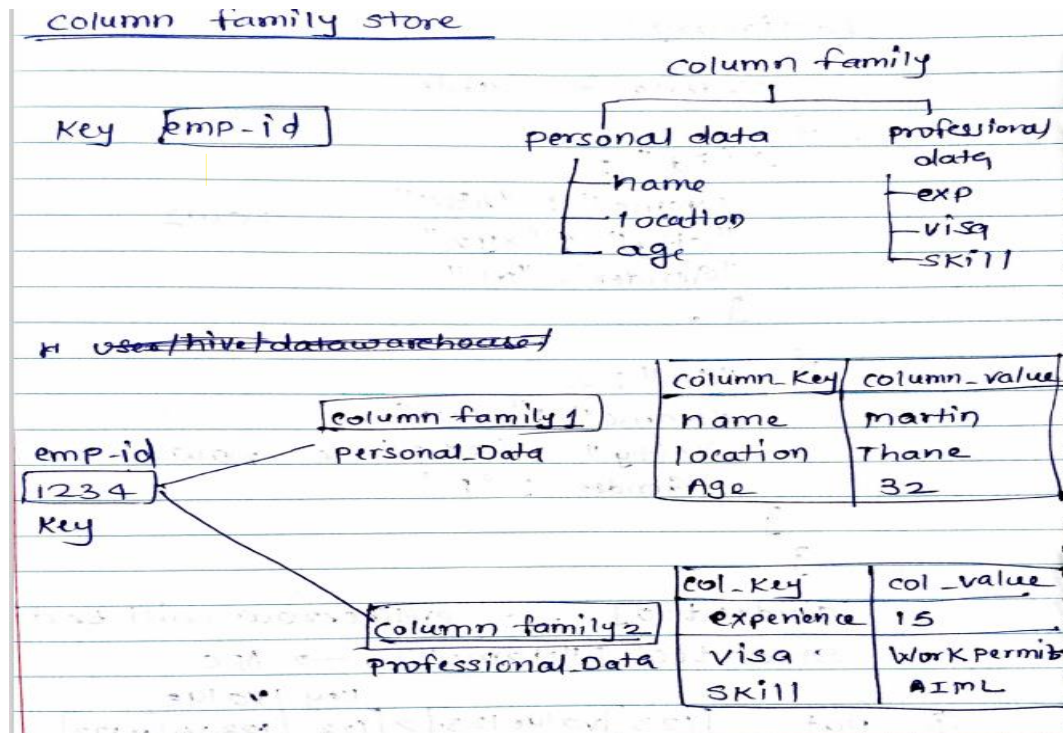 column family store
column family
Key emp-id
personal data
professional data
name
location
age
exp
visa
skill
user/hive/datawarehouse/
column family 1
personal_Data
emp-id
1234
Key
column_Key column_value
name martin
location Thane
Age 32
column family 2
Professional_Data
col_Key col_value
experience 15
visa Work permit
skill AIML